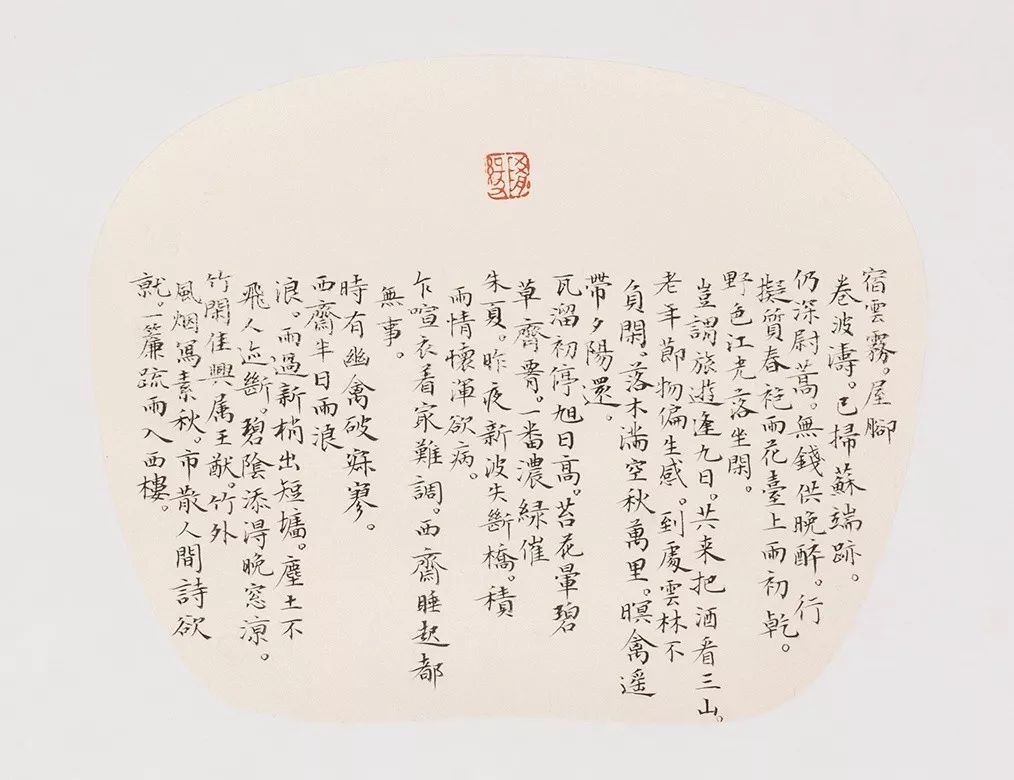 宿雲霧。屋腳
卷波濤。已掃蘇端跡。
仍深尉蒿。無錢供晚醉。行
擬質春袍雨花臺上雨初乾。
野色江光落坐閑。
豈謂旅遊逢九日。共来把酒看三山。
老年節物偏生感。到處雲林不
負閑。落木滿空秋萬里。暝禽遥
帶夕陽還。
瓦溜初停旭日高。苔花暈碧
草齊腰。一番濃緑催
朱夏。昨夜新波失斷橋。積
雨情懷渾欲病。
乍喧衣着家難調。西齋睡起都
無事。
時有幽禽破寂寥。
西齋半日雨浪
浪。雨過新梢出短墻。塵土不
飛人迹斷。碧陰添得晚窓涼。
竹閑佳興属王猷。竹外
風烟寫素秋。市散人間詩欲
就。一簾疏雨入西樓。